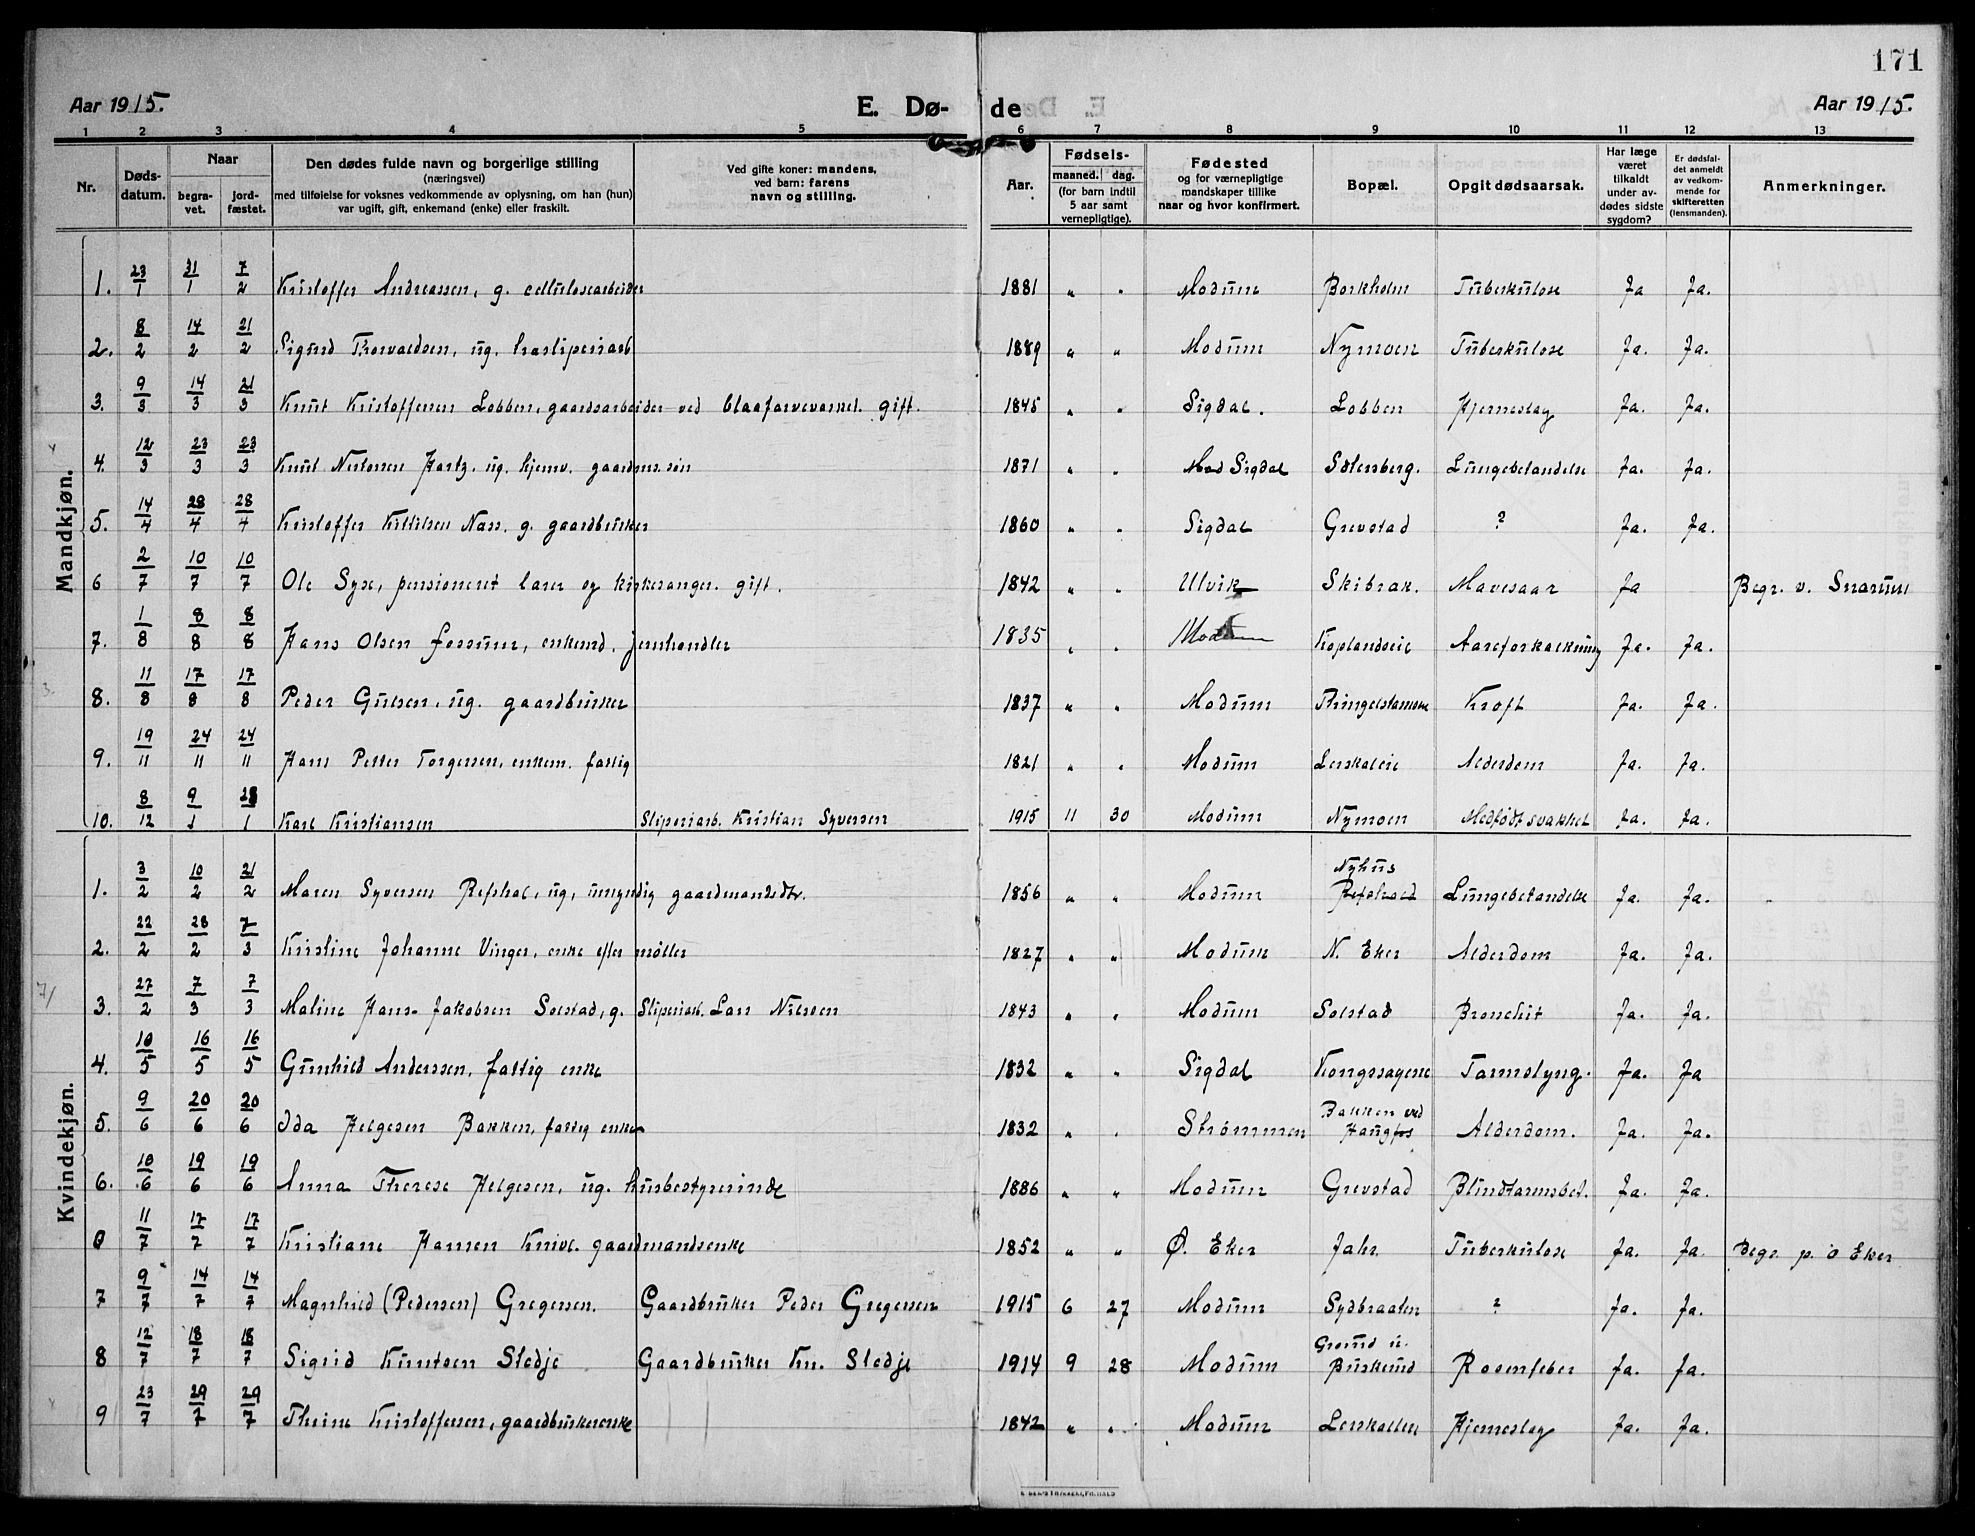 171
Aar 1915. E. Dø- de Aar 1915.
1 2 3 4 5 6 7 8 9 10 11 12 13
Nr. Døds-datum. Naar begra-vet. jord-fæstet. Den dødes fulde navn og borgerlige stilling (næringsvei) med tilføielse for voksnes vedkommende av oplysning, om han (hun) var ugift, gift, enkemand (enke) eller fraskilt. Ved gifte koner: mandens, ved barn: farens navn og stilling. Aar. Fødsels- maaned. dag. (for barn indtil 5 aar samt vernepligtige). Fødested og for værnepligtige mandskaper tillike naar og hvor konfirmert. Bopæl. Opgit dødsaarsak. Har læge været tilkaldt under av-dødes sidste sygdom? Er dødsfal-det anmeldt av vedkom-mende for skifteretten (lensmanden). Anmerkninger.
Mandkjøn.
1. 23/1 31/1 7/2 Kristoffer Andreassen, g. cellulosearbeider 1881 " " Modum Borkholm Tuberkulose Ja Ja.
2. 8/2 14/2 21/2 Sigurd Thorvaldsen, ug. træsliperiarb 1889 " " Modum Nymoen Tuberkulose Ja. Ja.
3. 9/3 14/3 21/3 Knut Kristoffersen Lobben, gaardsarbeider ved blaafarveverket. gift. 1845 " " Sigdal. Lobben Hjerneslag Ja. Ja.
4. 12/3 23/3 23/3 Knut Nertossen, ug. hjemv. gaardms. søn 1871 " " Sigdal Solensberg. Lungebetændelse Ja. Ja.
5. 14/4 28/4 28/4 Kristoffer Kittilsen Nass. g. gaardbruker 1860 " " Sigdal Grevstad ? Ja. Ja.
6 2/7 10/7 10/7 Ole Syse, pensioneret lærer og kirkesanger. gift. 1842 " " Ulvik Skibrak. Mavesaar Ja Begr. v. Snarum
7. 1/8 8/8 8/8 Hans Olsen Fossum, enkemd, jernhandler 1835 " " Modum Koplandseie Aareforkalkning Ja. Ja.
8. 11/8 17/8 17/8 Peder Gulsen, ug. gaardbruker 1837 " " Modum Thingelstamoen Kræft Ja. Ja.
9. 19/11 24/11 24/11 Hans Petter Torgersen, enkem. fattig 1821 " " Modum Lerskaleie Alderdom Ja. Ja.
10. 8/12 9/1 23/1 Karl Kristiansen Sliperiarb. Kristian Syversen 1915 11 30 Modum Nymoen Medfødt svakhet Ja. Ja.
Kvindekjøn.
1. 3/2 10/2 21/2 Maren Syversen Refshal, ug, umyndig gaardmandsdtr. 1856 " " Modum Nyhus Refshald Lungebetændelse Ja. Ja.
2. 22/2 28/2 7/3 Kristine Johanne Vinger, enke efter møller 1827 " " Modum N. Eker Alderdom Ja. Ja.
3. 27/2 7/3 7/3 Maline Hans-Jakobsen Solstad, g. Sliperiarb. Lars Nilsen 1843 " " Modum Solstad Bronchit Ja. Ja.
4. 10/5 16/5 16/5 Gunhild Anderssen, fattig enke 1832 " " Sigdal Kongssagene Tarmslyng. Ja. Ja
5. 9/6 20/6 20/6 Ida Helgesen Bakken, fattig enke 1832 " " Strømmen Bakken ved Haugfos Alderdom. Ja. Ja.
6. 10/6 19/6 19/6 Anna Therese Helgesen, ug. husbestyrerinde 1886 " " Modum Grevstad Blindtarmsbet. Ja. Ja.
0 11/7 17/7 17/7 Kristiane Hansen Knive. gaardmandsenke 1852 " " Ø. Eker Jahr Tuberkulose Ja. Ja. Begr. p. ø Eker
7 9/7 14/7 14/7 Magnhild (Pedersen) Gregersen. Gaardbruker Peder Gregersen 1915 6 27 Modum Sydbraaten ? Ja. Ja.
8 12/7 18/7 18/7 Sigrid Knutsen Stedje Gaardbruker Kn. Stedje 1914 9 28 Modum Buskerud Rosenfeber Ja. Ja.
9 23/7 29/7 29/7 Thrine Kristoffersen, gaardbrukerenke 1842 " " Modum Lerskallen Hjerneslag Ja. Ja.